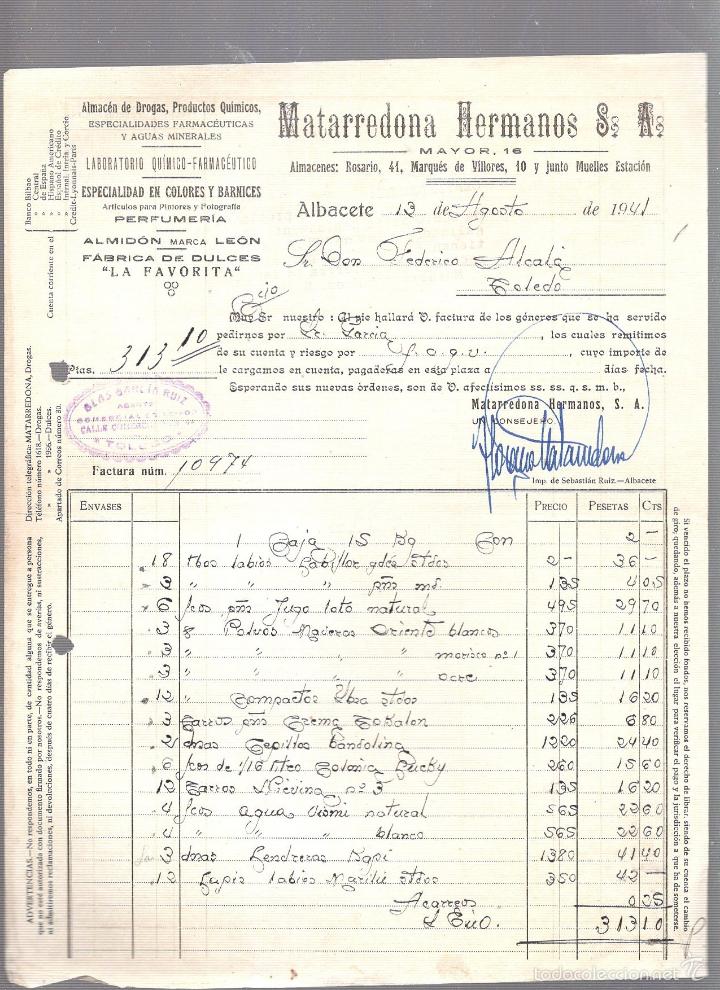 Almacén de Drogas, Productos Químicos,
ESPECIALIDADES FARMACÉUTICAS
Y AGUAS MINERALES
LABORATORIO QUÍMICO-FARMACÉUTICO
ESPECIALIDAD EN COLORES Y BARNICES
Artículos para Pintores y Fotografía
PERFUMERÍA
ALMIDÓN MARCA LEÓN
FÁBRICA DE DULCES
"LA FAVORITA"
Matarredona Hermanos S. A.
MAYOR, 16
Almacenes: Rosario, 41, Marqués de Villores, 10 y junto Muelles Estación
Albacete 13 de Agosto de 1941
Sr. Don Federico Alcalá
Toledo
Muy Sr nuestro: Al pie hallará V. factura de los géneros que se ha servido
pedirnos por Sr. García, los cuales remitimos
de su cuenta y riesgo por, cuyo importe de
Ptas. 313 10 le cargamos en cuenta, pagaderas en esta plaza a días fecha.
Esperando sus nuevas órdenes, son de V. afectísimos ss. ss. q. s. m. b.,
Matarredona Hermanos, S. A.
UN CONSEJERO,
BLAS GARCIA RUIZ
AGENTE
COMERCIAL
TOLEDO
Factura núm. 10974
Imp. de Sebastián Ruiz.—Albacete
Cuenta corriente en el
Banco Bilbao
» Central
» de España
» Hispano Americano
» Español de Crédito
» Internal. Inrria. y Corcio
Credit-Lyonnais-París
Dirección telegráfica: MATARREDONA, Drogas.
Teléfono número 1618.—Drogas.
» » 1956.—Dulces.
Apartado de Correos número 80.
ENVASES PRECIO PESETAS CTS
1 Caja 15 Kg Con 2 —
18 Tbos labios gdes stdos 2 — 36 —
3 " " pñs md. 1 35 4 05
6 fcos pñs Jugo loto natural 4 95 29 70
3 Polvos Maderas Oriente blancos 3 70 11 10
3 " " " morisco nº 1 3 70 11 10
3 " " " ocre 3 70 11 10
12 " Compactos stdos 1 35 16 20
3 Tarros pñs Crema Tokalon 2 26 6 80
2 dnas Cepillos Bandolina 12 20 24 40
6 fcos de 1/16 ltro Colonia Lucky 2 60 15 60
12 Tarros Nievina nº 3 1 35 16 20
4 fcos agua Vismi natural 5 65 22 60
4 " " blanco 5 65 22 60
3 dnas Lendreras Kapi 13 80 41 40
12 Lapiz labios Marilú stdos 3 50 42 —
Acarreos 0 25
S. E. ú O. 313 10
ADVERTENCIAS.—No respondemos, en todo ni en parte, de cantidad alguna que se entregue a persona
que no esté autorizada con documento firmado por nosotros.—No respondemos de averías, ni sustracciones,
ni admitiremos reclamaciones, ni devoluciones, después de cuatro días de recibir el género.
Si vencido el plazo no hemos recibido fondos, nos reservamos el derecho de librar, siendo de su cuenta el cambio
de giro, quedando, además a nuestra elección el lugar para verificar el pago y la jurisdicción a que ha de someterse.
todocoleccion.net